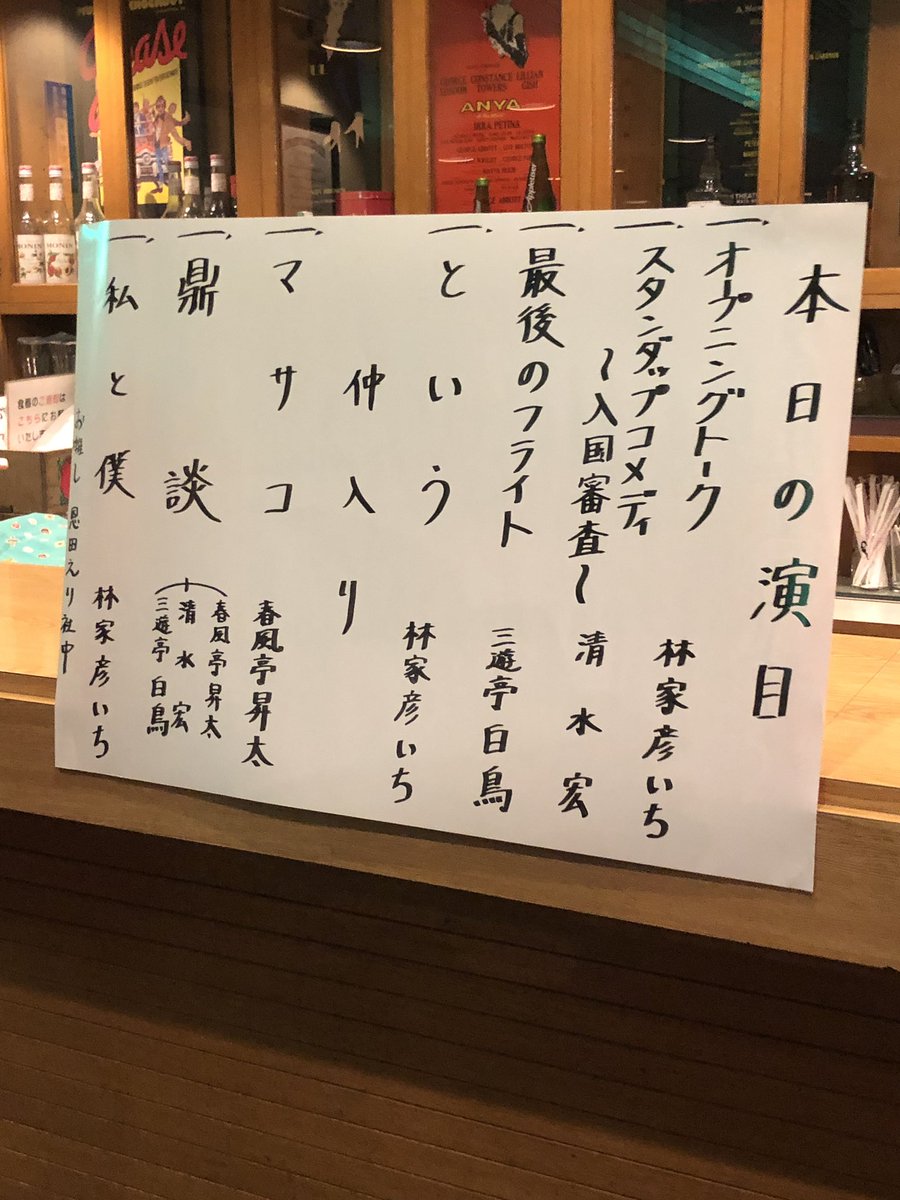 本日の演目
一、オープニングトーク 林家彦いち
一、スタンダップコメディ
〜入国審査〜 清水宏
一、最後のフライト 三遊亭白鳥
一、という 林家彦いち
仲入り
一、マサコ 春風亭昇太
一、鼎談
春風亭昇太
清水宏
三遊亭白鳥
一、私と僕 林家彦いち
お囃し 恩田えり社中
GEORGE CONSTANCE LILLIAN
LONDON TOWERS GISH
ANYA
IRRA PETINA
GEORGE ABBOTT
MONIN
MONIN
Appletiser
食器のご返却は
こちらにお
いたし